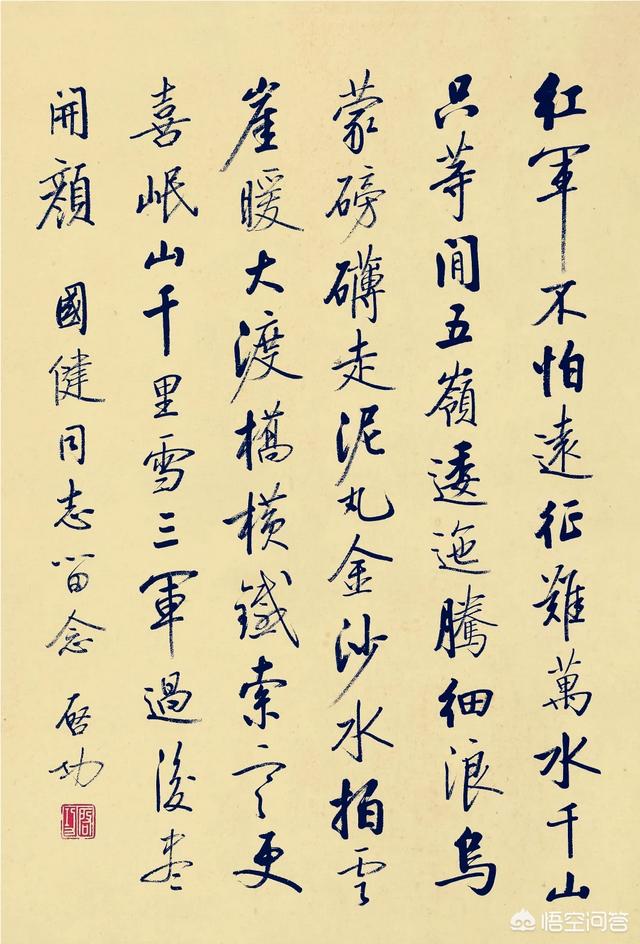 紅軍不怕遠征難萬水千山
只等間五嶺逶迤騰細浪烏
蒙磅礴走泥丸金沙水拍雲
崖暖大渡橋橫鐵索寒更
喜岷山千里雪三軍過後盡
開顏 國健同志留念 啓功
啓功
悟空问答